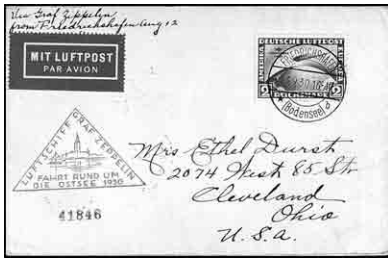 Via Graf Zeppelin
from Friedrichshafen Aug 12
MIT LUFTPOST
PAR AVION
DEUTSCHE LUFTPOST
2
2
REICHSMARK
FRIEDRICHSHAFEN
(Bodensee) d
LUFTSCHIFF GRAF ZEPPELIN
FAHRT RUND UM
DIE OSTSEE 1930
41846
Mrs Ethel Durst
2074 West 85 Str
Cleveland
Ohio
U.S.a.